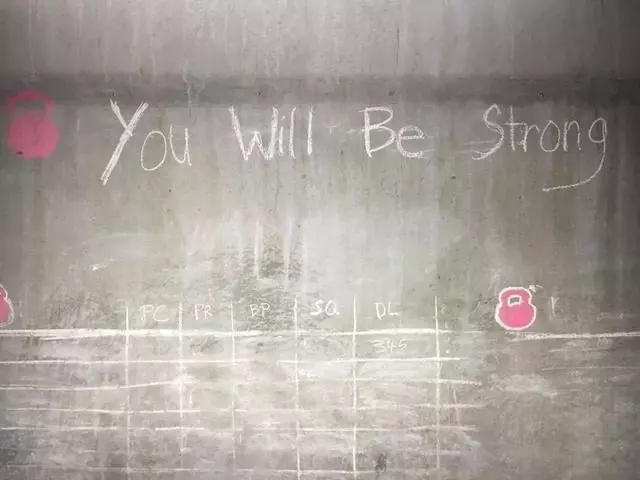 You Will Be Strong
PC PR BP SQ DL
345